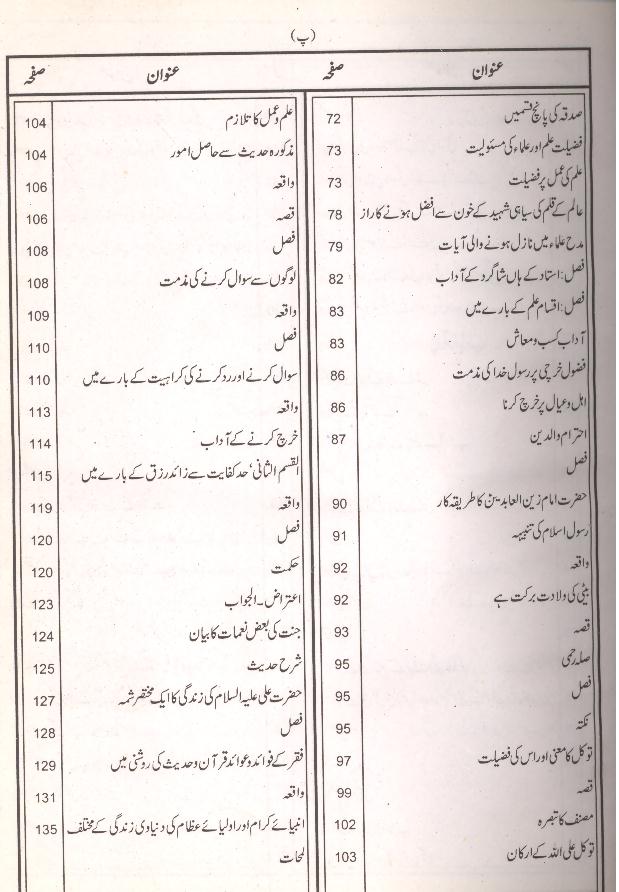 (پ)
عنوان صفحہ عنوان صفحہ
صدقہ کی پانچ قسمیں 72
فضیلت علم اور علماء کی مسئولیت 73
علم کی عمل پر فضیلت 73
عالم کے قلم کی سیاہی شہید کے خون سے افضل ہونے کا راز 78
مدح علماء میں نازل ہونے والی آیات 79
فصل: استاد کے ہاں شاگرد کے آداب 82
فصل: اقسام علم کے بارے میں 83
آداب کسب و معاش 83
فضول خرچی پر رسول خدا کی مذمت 86
اہل و عیال پر خرچ کرنا 86
احترام والدین 87
فصل
حضرت امام زین العابدین کا طریقہ کار 90
رسول اسلام کی تنبیہہ 91
واقعہ 92
بیٹی کی ولادت برکت ہے 92
قصہ 93
صلہ رحمی 95
فصل 95
نکتہ 95
توکل کا معنی اور اس کی فضیلت 97
قصہ 99
مصنف کا تبصرہ 102
توکل علی اللہ کے ارکان 103
علم و عمل کا تلازم 104
مذکورہ حدیث سے حاصل امور 104
واقعہ 106
قصہ 106
فصل 108
لوگوں سے سوال کرنے کی مذمت 108
واقعہ 109
فصل 110
سوال کرنے اور رد کرنے کی کراہیت کے بارے میں 110
واقعہ 113
خرچ کرنے کے آداب 114
القسم الثانی، حد کفایت سے زائد رزق کے بارے میں 115
واقعہ 119
فصل 120
حکمت 120
اعتراض۔ الجواب 123
جنت کی بعض نعمات کا بیان 124
شرح حدیث 125
حضرت علی علیہ السلام کی زندگی کا ایک مختصر شمہ 127
فصل 128
فقر کے فوائد و عوائد قرآن و حدیث کی روشنی میں 129
واقعہ 131
انبیائے کرام اور اولیائے عظام کی دنیاوی زندگی کے مختلف 135
لمحات